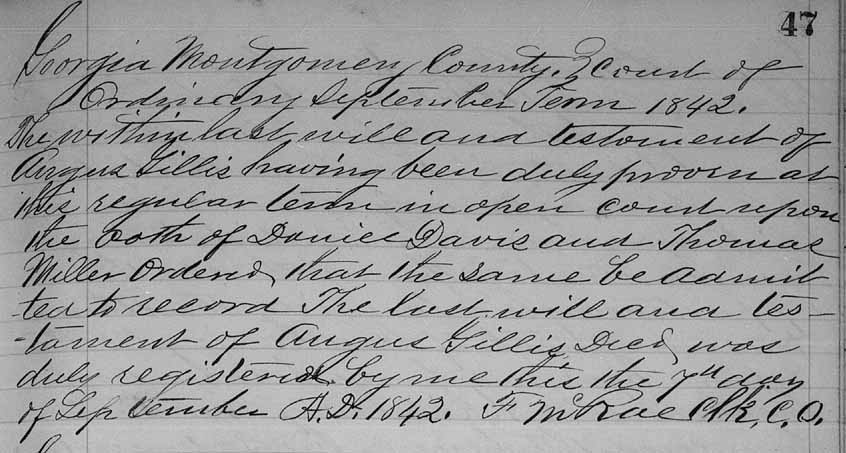 47
Georgia Montgomery County. } Court of
Ordinary September Term 1842.
The within last will and testament of
Angus Gillis having been duly proven at
this regular term in open court upon
the oath of Daniel Davis and Thomas
Miller Ordered, that the same be admit
-ted to record The last will and tes-
-tament of Angus Gillis Decd, was
duly registered by me this the 7th day
of September A.D. 1842. F McRae Clk, C.O.